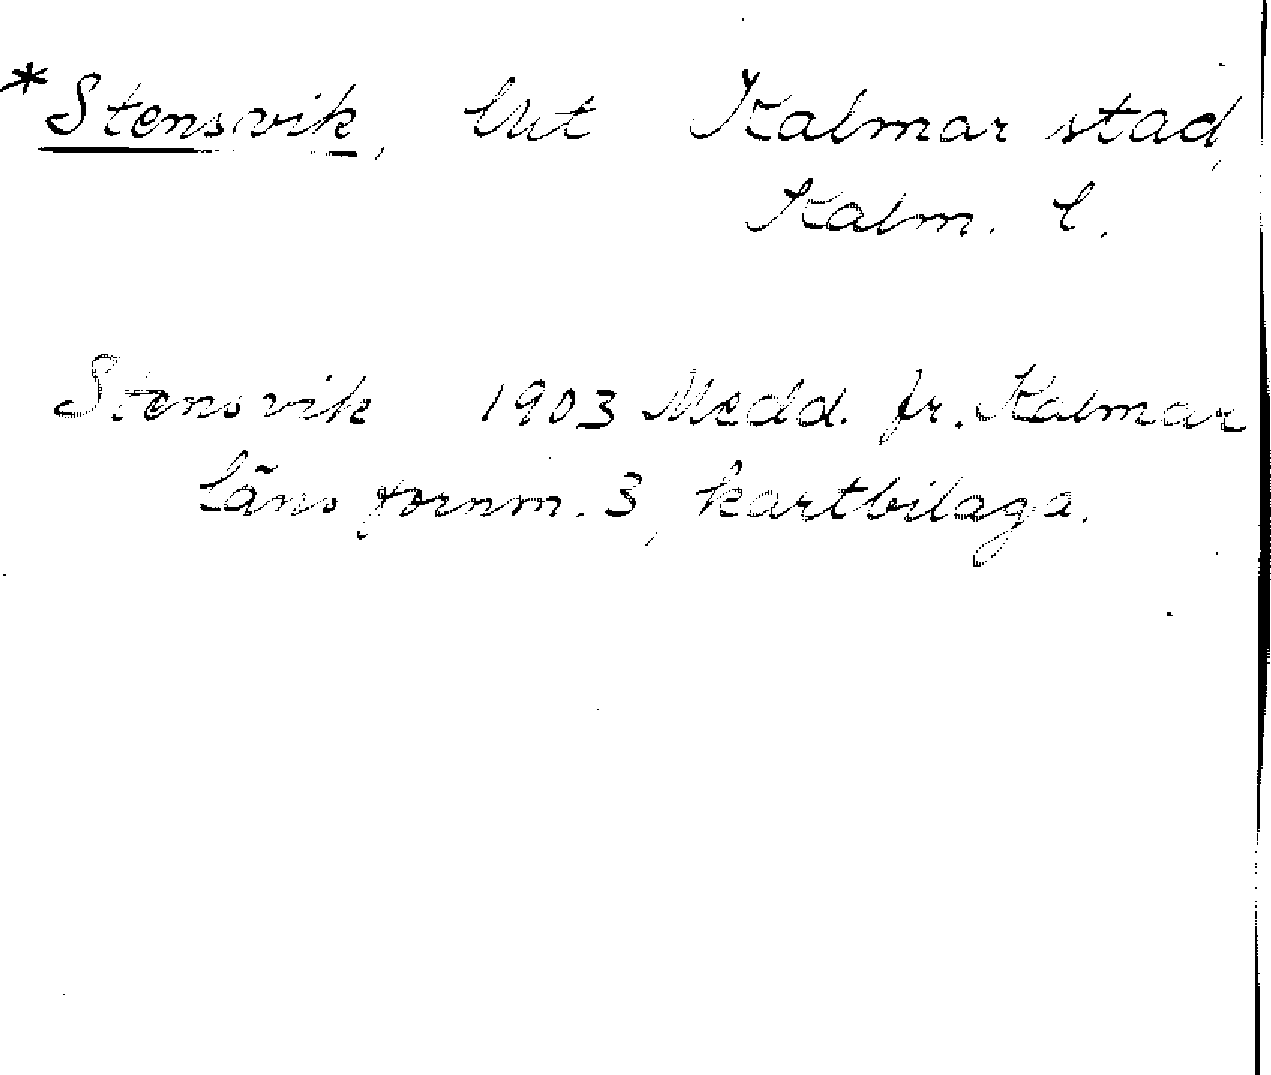 *Stensvik, lht Kalmar stad,
Kalm. l.
Stensvik 1903 Medd. fr. Kalmar
läns fornm. 3, kartbilaga.